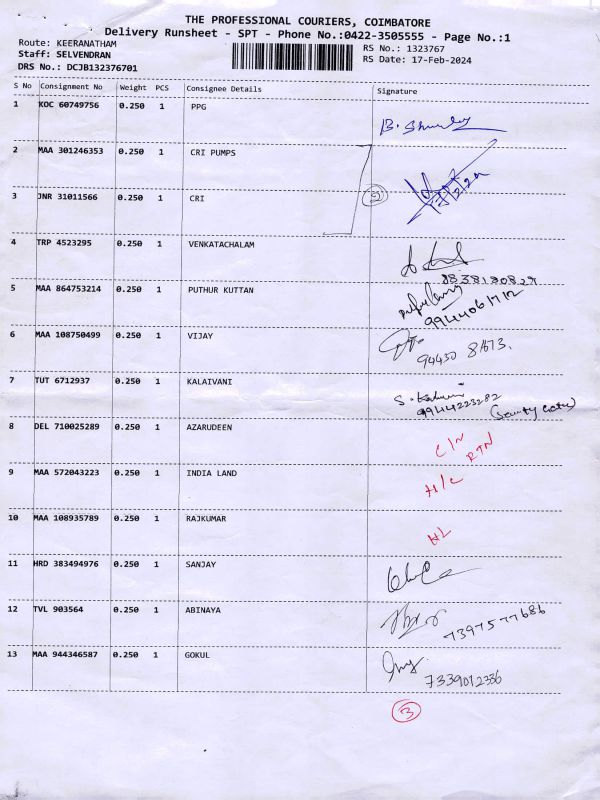 THE PROFESSIONAL COURIERS, COIMBATORE
Delivery Runsheet - SPT - Phone No.:0422-3505555 - Page No.:1
Route: KEERANATHAM RS No.: 1323767
Staff: SELVENDRAN RS Date: 17-Feb-2024
DRS No.: DCJB132376701
S No Consignment No Weight PCS Consignee Details Signature
1 KOC 60749756 0.250 1 PPG
2 MAA 301246353 0.250 1 CRI PUMPS
3 JNR 31011566 0.250 1 CRI
4 TRP 4523295 0.250 1 VENKATACHALAM
5 MAA 864753214 0.250 1 PUTHUR KUTTAN
9944061712
6 MAA 108750499 0.250 1 VIJAY
7 TUT 6712937 0.250 1 KALAIVANI
9944223282
8 DEL 710025289 0.250 1 AZARUDEEN
C/N
RTN
9 MAA 572043223 0.250 1 INDIA LAND
H/C
10 MAA 108935789 0.250 1 RAJKUMAR
11 HRD 383494976 0.250 1 SANJAY
12 TVL 903564 0.250 1 ABINAYA
7397577686
13 MAA 944346587 0.250 1 GOKUL
7339012336
3